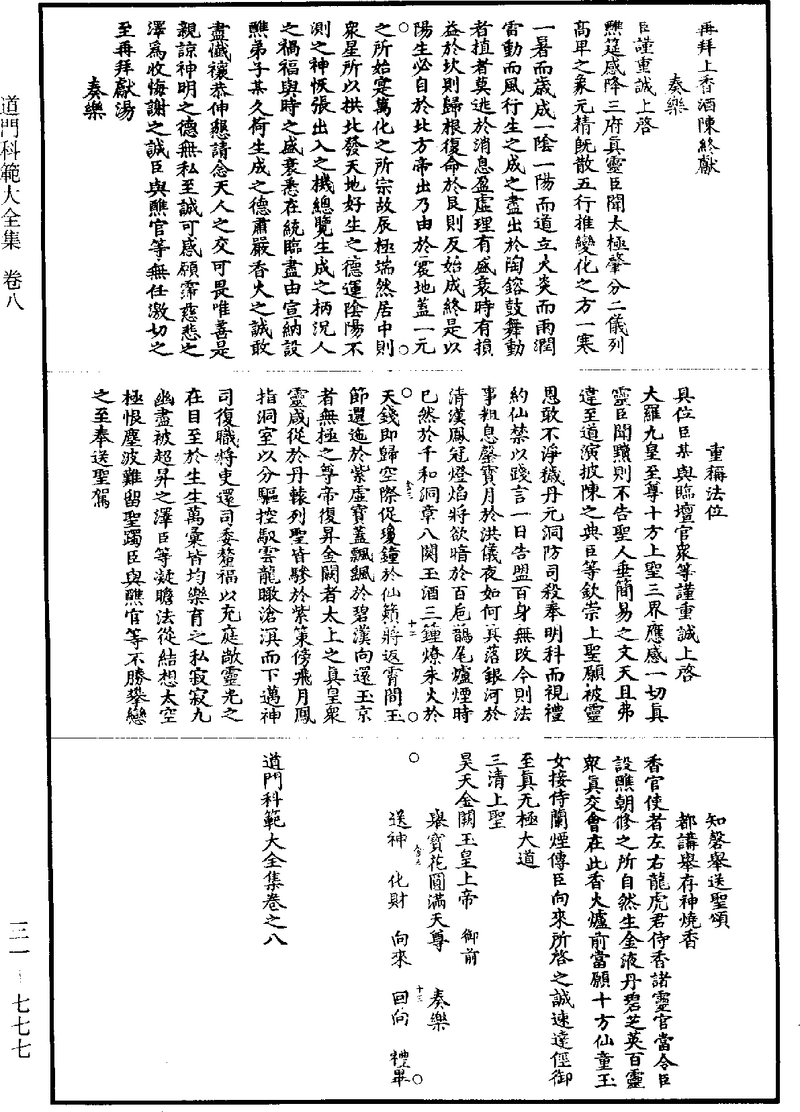 再拜上香酒陳終獻
奏樂
臣謹重誠上啓
醮筵感降三府真靈臣聞太極肇分二儀列
高卑之象元精旣散五行推變化之方一寒
一暑而歲成一陰一陽而道立火炎而雨潤
雷動而風行生之成之盡出於陶鎔鼓舞動
者植者莫逃於消息盈虛理有盛衰時有損
益於坎則歸根復命於艮則反始成終是以
陽生必自於北方帝出乃由於震地蓋一元
之所始寔萬化之所宗故辰極端然居中則
衆星所以拱北發天地好生之德運陰陽不
測之神恢張出入之機總覽生成之柄況人
之禍福與時之盛衰悉在統臨盡由宣納設
醮弟子某久荷生成之德肅嚴香火之誠敢
盡懺禳恭伸懇請念天人之交可畏唯善是
親諒神明之德無私至誠可感願霈慈悲之
澤爲收悔謝之誠臣與醮官等無任激切之
至再拜獻湯
奏樂
重稱法位
具位臣某與臨壇官衆等謹重誠上啓
大羅九皇至尊十方上聖三界應感一切真
靈臣聞黷則不告聖人垂簡易之文天且弗
違至道演披陳之典臣等欽崇上聖願被靈
恩敢不淨穢丹元洞防司殺奉明科而視禮
約仙禁以踐言一日告盟百身無改今則法
事粗息罄寶月於洪儀夜如何其落銀河於
清漢鳳冠燈焰將欲暗於百卮鵲尾爐煙時
已然於千和洞章八闋玉酒三鍾燎朱火於
天錢即歸空際促瓊鐘於仙籟將返霄間玉
節還迤於紫虛寶蓋飄飄於碧漢向還玉京
者無極之尊帝復昇金闕者太上之真皇衆
靈咸從於丹轅列聖皆驂於紫策傍飛月鳳
指洞室以分驅控馭雲龍瞰滄溟而下邁神
司復職將吏還司委釐福以充庭敞靈光之
在目至於生生萬彙皆均樂育之私寂寂九
幽盡被超昇之澤臣等凝瞻法從結想太空
極恨塵波難留聖躅臣與醮官等不勝攀戀
之至奉送聖駕
知磬舉送聖頌
都講舉存神燒香
香官使者左右龍虎君侍香諸靈官當令臣
設醮朝修之所自然生金液丹碧芝英百靈
衆真交會在此香火爐前當願十方仙童玉
女接侍蘭煙傳臣向來所啓之誠速達徑御
至真无極大道
三清上聖
昊天金闕玉皇上帝 御前
舉寶花圓滿天尊 奏樂
送神 化財 向來 回向 禮畢
道門科範大全集卷之八
道門科範大全集 卷八
三一-七七七